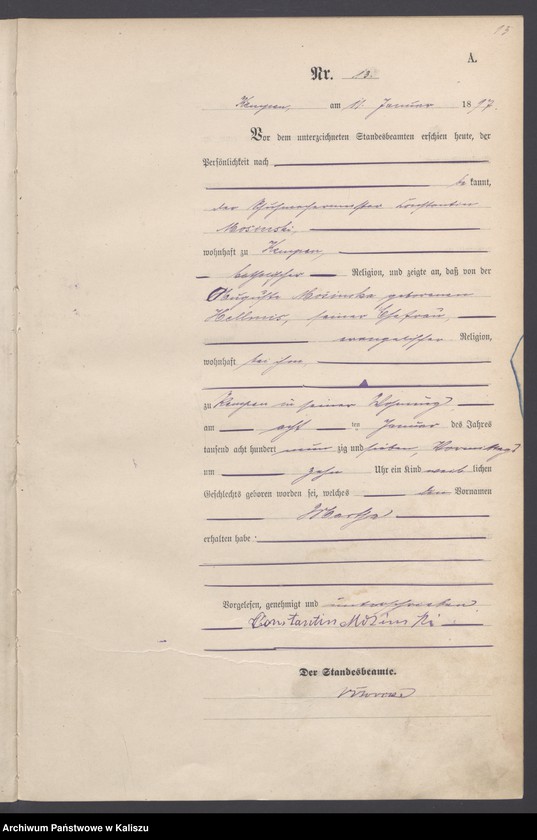 13
A.
Nr. 13.
Kempen, am 11. Januar 1897.
Vor dem unterzeichneten Standesbeamten erschien heute, der
Persönlichkeit nach
bekannt,
der Schuhmachermeister Constantin
Mosinski,
wohnhaft zu Kempen,
katholischer Religion, und zeigte an, daß von der
Auguste Mosinska geborenen
Hellmis, seiner Ehefrau,
evangelischer Religion,
wohnhaft bei ihm,
zu Kempen in seiner Wohnung
am acht ten Januar des Jahres
tausend acht hundert neun zig und sieben, Vormittags
um zehn Uhr ein Kind weib lichen
Geschlechts geboren worden sei, welches den Vornamen
Martha
erhalten habe
Vorgelesen, genehmigt und unterschrieben
Constantin Mosinski
Der Standesbeamte.
Archiwum Państwowe w Kaliszu